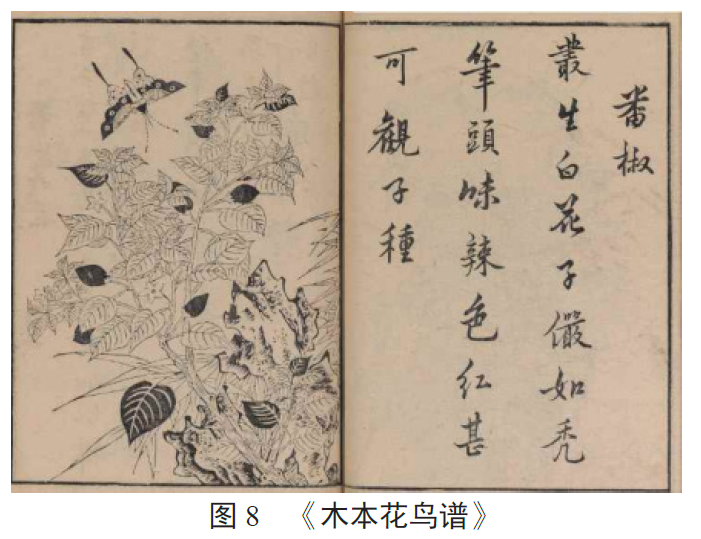 番椒
叢生白花子儼如禿
筆頭味辣色紅甚
可觀子種
图 8 《木本花鸟谱》